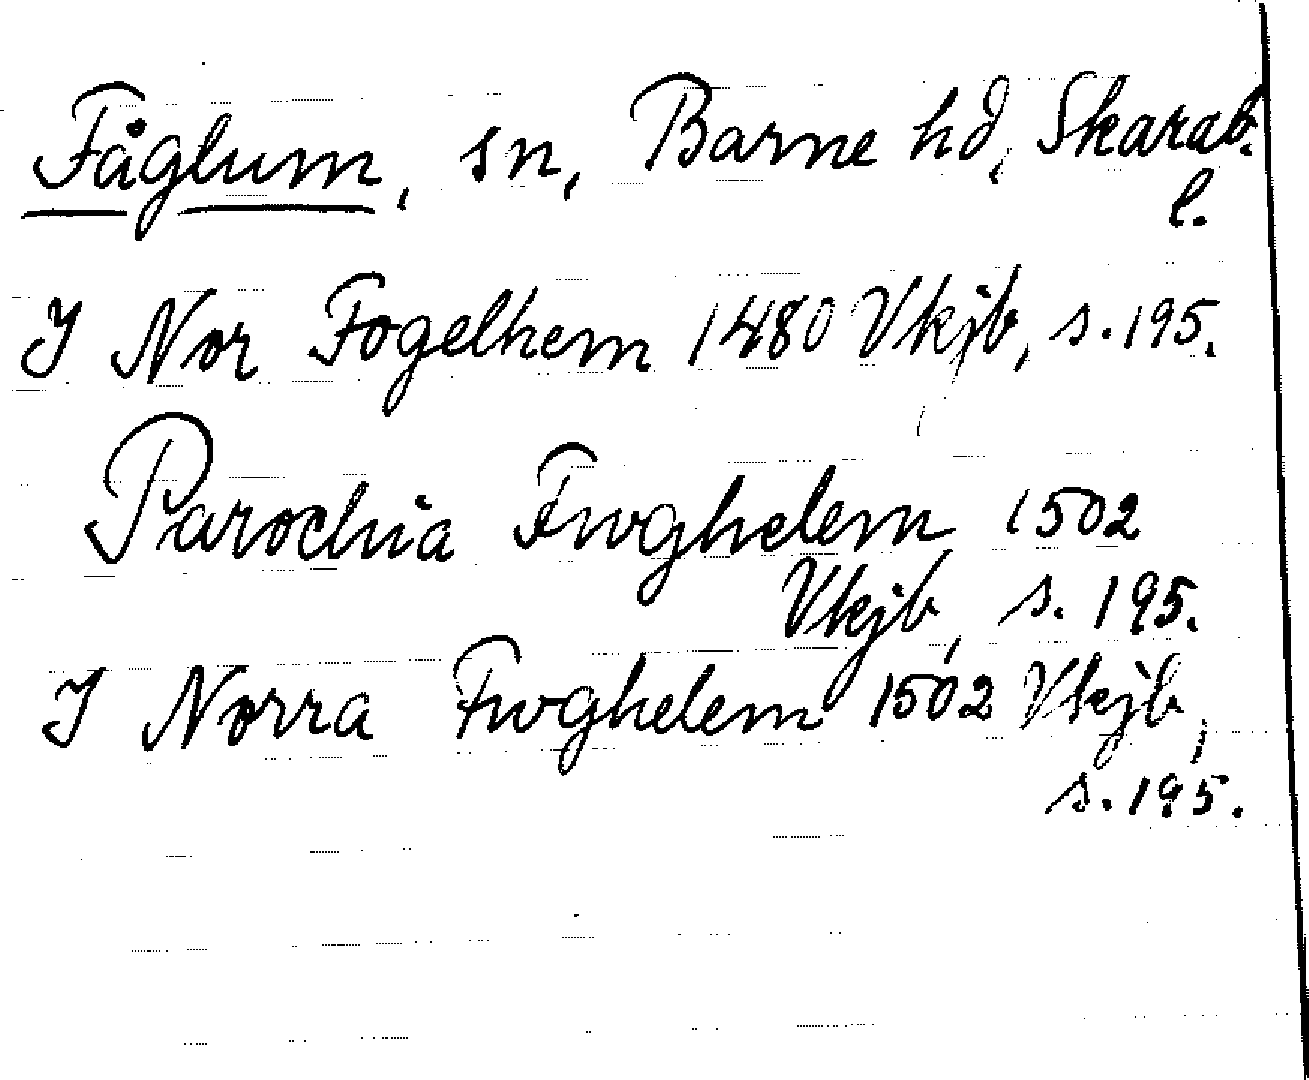 Fåglum, sn, Barne hd, Skarab.
l.
I Nor Fogelhem 1480 Vkjb, s. 195.
Parochia Fwghelem 1502
Vkjb, s. 195.
I Norra Fwghelem 1502 Vkjb,
s. 195.